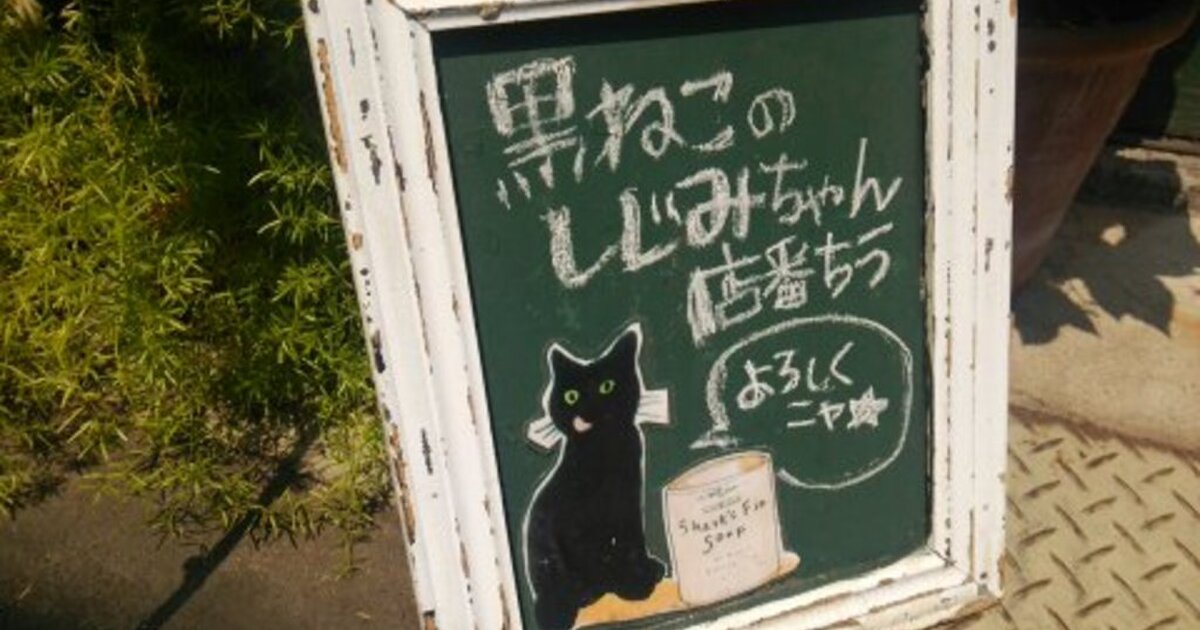 黒ねこの
しじみちゃん
店番ちう
よろしく
ニャ☆
Shark's Fin
Soup